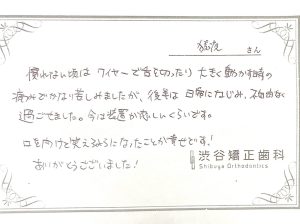 さん
慣れない頃は ワイヤーで舌を切ったり 大きく動かす時の
痛みでかなり苦しみましたが、後半は 日常になじみ、不自由なく
過ごせました。今は装置が恋しいくらいです。
口を開けて笑えるようになったことが幸せです!
ありがとうございました!
渋谷矯正歯科
Shibuya Orthodontics